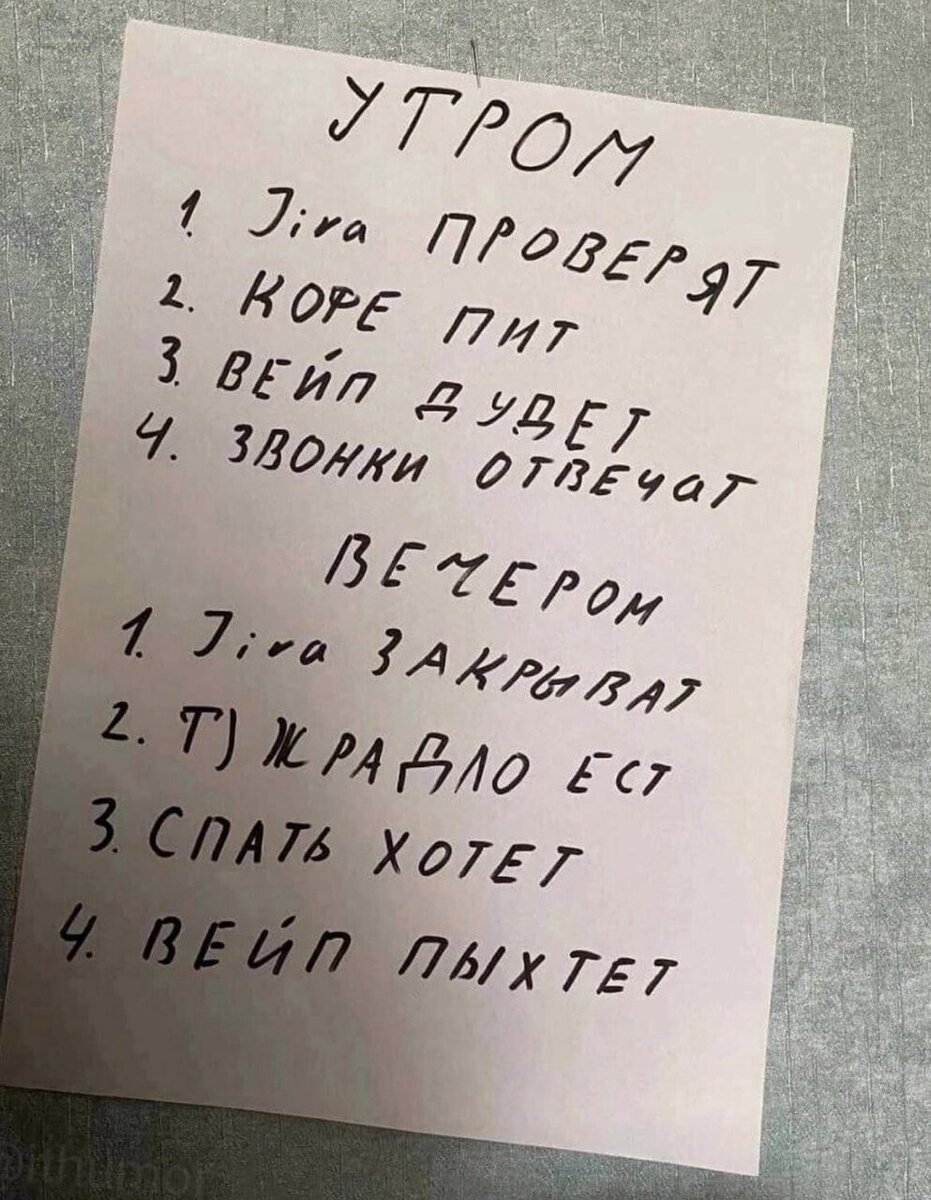 УТРОМ
1. Jira ПРОВЕРЯТ
2. КОФЕ ПИТ
3. ВЕЙП ДУДЕТ
4. ЗВОНКИ ОТВЕЧАТ
ВЕЧЕРОМ
1. Jira ЗАКРЫВАТ
2. Т) ЖРАДЛО ЕСТ
3. СПАТЬ ХОТЕТ
4. ВЕЙП ПЫХТЕТ